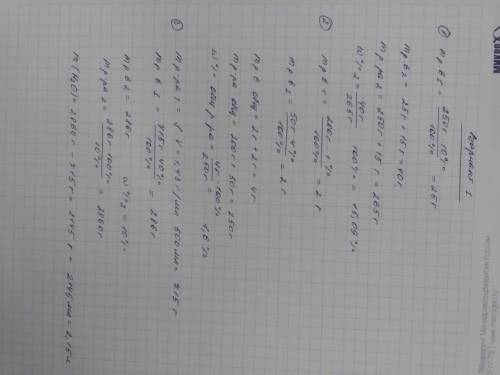 Вариант 1
① m р.в 1 = 250г · 10% / 100% = 25г
m р.в 2 = 25г + 15г = 40г
m р-ра 2 = 250г + 15г = 265г
ω% 2 = 40г / 265г · 100% = 15,09%
② m р.в 1 = 200г · 1% / 100% = 2г
m р.в 2 = 50г · 4% / 100% = 2г
m р.в общ = 2г + 2г = 4г
m р-ра общ = 200г + 50г = 250г
ω% общ р-ра = 4г · 100% / 250г = 1,6%
③ m р-ра 1 = ρ · V = 1,43г/мл · 500мл = 715г
m р.в 1 = 715г · 40% / 100% = 286г
m р.в 2 = 286г ω% 2 = 10%
m р-ра 2 = 286г · 100% / 10% = 2860г
m(H₂O) = 2860г - 715г = 2145г = 2145мл = 2,15л